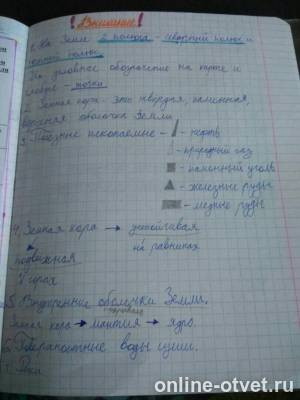 ! Внимание!
1. На Земле 2 полюса - северный полюс и
южный полюс.
Их условное обозначение на карте и
глобусе - точки
2. Земная кора - это твёрдая, каменная,
верхняя оболочка Земли
3. Полезные ископаемые - нефть
- природный газ
- каменный уголь
- железные руды
- медные руды
4. Земная кора → устойчивая
на равнинах
подвижная
в горах
5. Внутренние оболочки Земли.
Земная кора → мантия → ядро.
6. Поверхностные воды суши.
1. Реки
online-otvet.ru